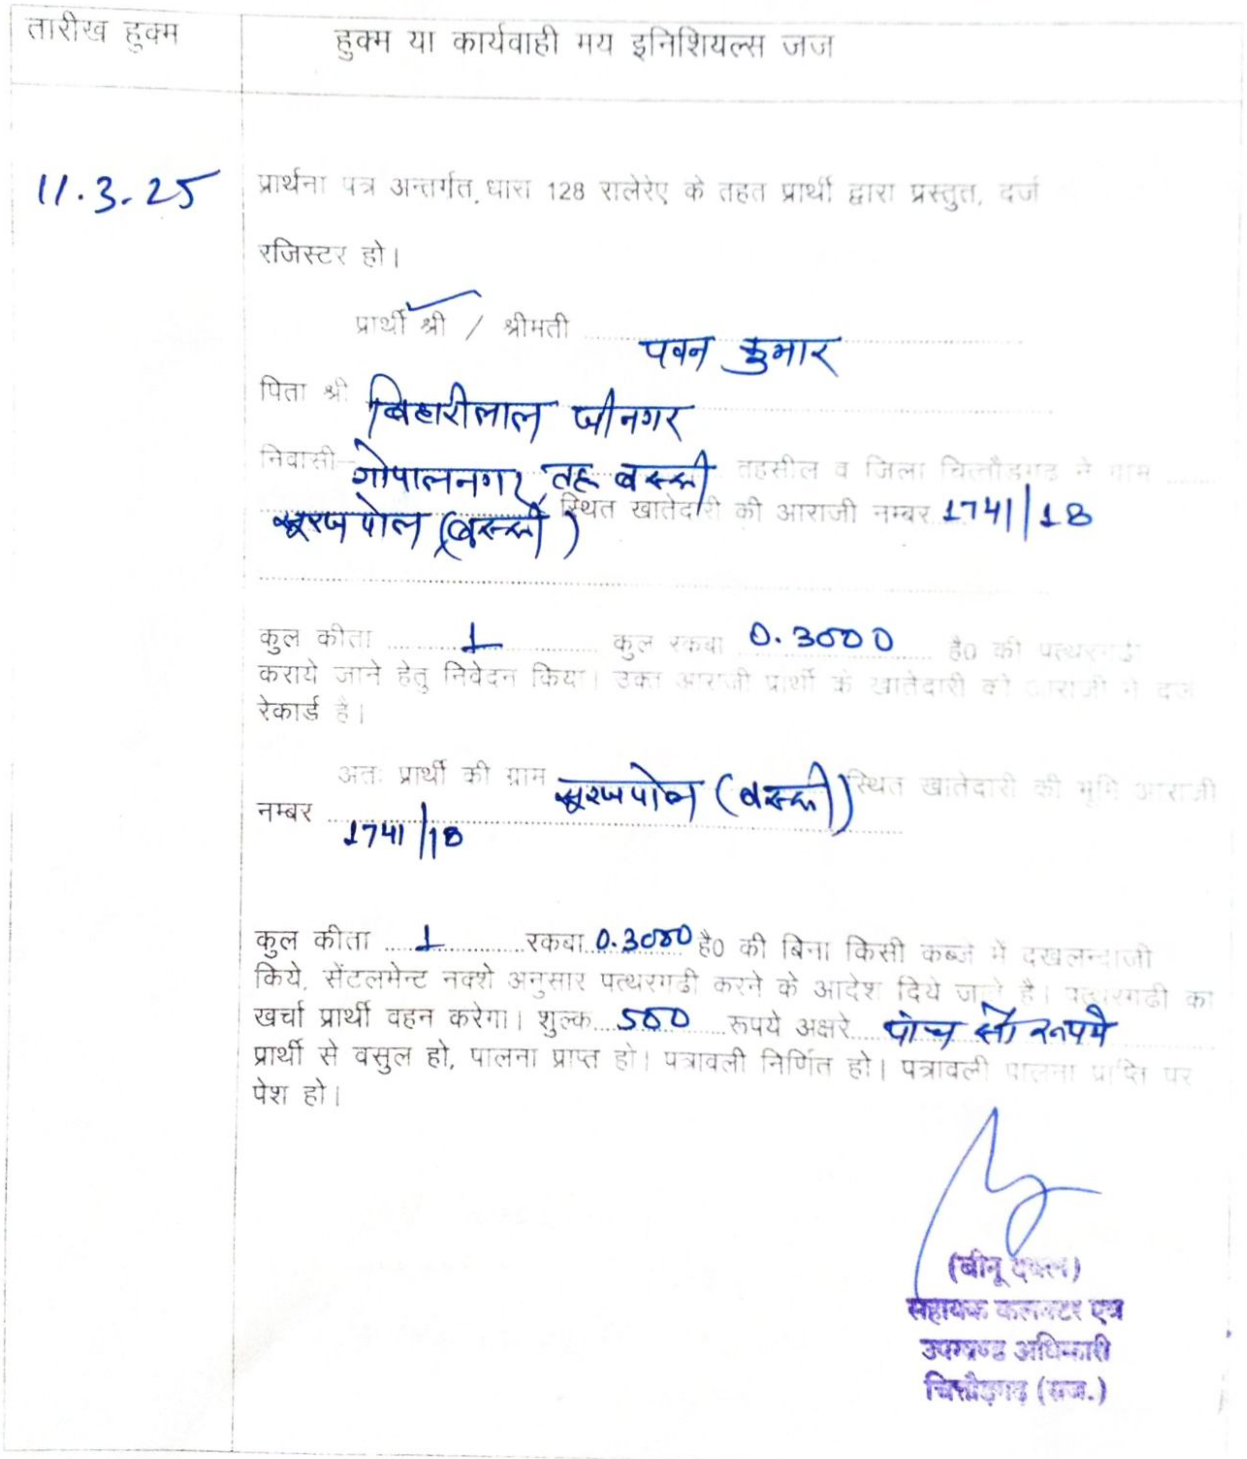 तारीख हुक्म
हुक्म या कार्यवाही मय इनिशियल्स जज
11.3.25
प्रार्थना पत्र अन्तर्गत धारा 128 रालेरेए के तहत प्रार्थी द्वारा प्रस्तुत, दर्ज
रजिस्टर हो।
प्रार्थी श्री / श्रीमती पवन कुमार
पिता श्री बिहारीलाल जीनगर
निवासी गोपालनगर तह बस्सी तहसील व जिला चित्तौड़गढ ने ग्राम
सूरजपोल (बस्सी) स्थित खातेदारी की आराजी नम्बर 1741/18
कुल कीता 1 कुल रकबा 0.3000 है0 की पत्थरगढी
कराये जाने हेतु निवेदन किया। उक्त आराजी प्रार्थी के खातेदारी की आराजी में दर्ज
रेकार्ड है।
अतः प्रार्थी की ग्राम सूरजपोल (बस्सी) स्थित खातेदारी की भूमि आराजी
नम्बर 1741/18
कुल कीता 1 रकबा 0.3000 है0 की बिना किसी कब्जे में दखलन्दाजी
किये, सेंटलमेन्ट नक्शे अनुसार पत्थरगढी करने के आदेश दिये जाते है। पत्थरगढी का
खर्चा प्रार्थी वहन करेगा। शुल्क 500 रूपये अक्षरे पांच सौ रूपये
प्रार्थी से वसुल हो, पालना प्राप्त हो। पत्रावली निर्णित हो। पत्रावली पालना प्राप्ति पर
पेश हो।
(बीनू देवल)
सहायक कलक्टर एवं
उपखण्ड अधिकारी
चित्तौड़गढ़ (राज.)